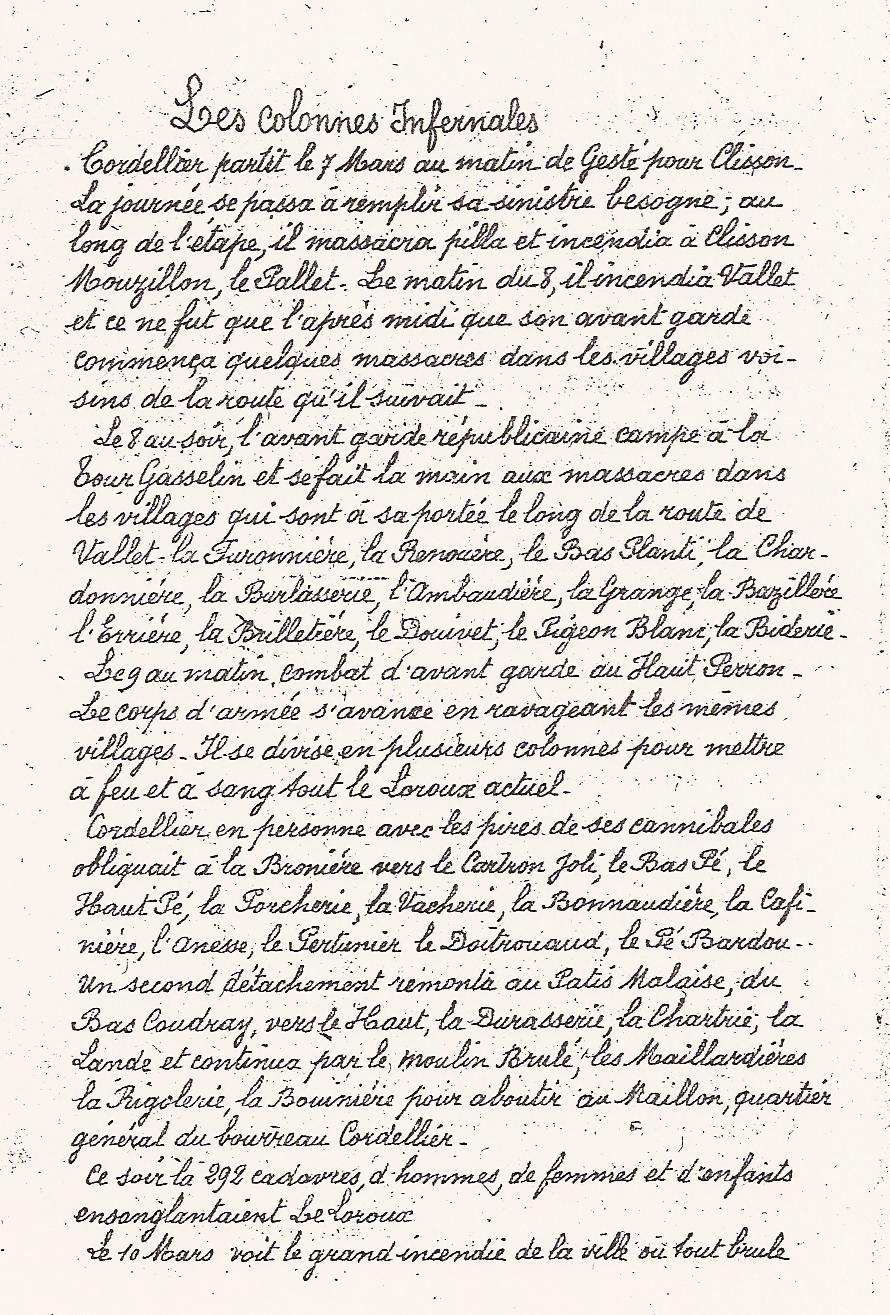 Les colonnes Infernales
Cordellier partit le 7 Mars au matin de Gesté pour Clisson.
La journée se passa à remplir sa sinistre besogne; au
long de l'étape, il massacra pilla et incendia à Clisson
Mouzillon, le Pallet. Le matin du 8, il incendia Vallet
et ce ne fut que l'après midi que son avant garde
commença quelques massacres dans les villages voi-
sins de la route qu'il suivait.
Le 8 au soir, l'avant garde républicaine campe à la
Tour Gasselin et se fait la main aux massacres dans
les villages qui sont à sa portée le long de la route de
Vallet. la Furonnière, la Renouère, le Bas Planti, la Char-
donnière, la Burlasserie, l'Ambaudière, la Grange, la Bazillère
l'Errière, la Brilletière, le Douivet, le Pigeon Blanc, la Biderie.
Le 9 au matin, combat d'avant garde au Haut Perron.
Le corps d'armée s'avance en ravageant les mêmes
villages. Il se divise en plusieurs colonnes pour mettre
à feu et à sang tout le Loroux actuel.
Cordellier en personne avec les pires de ses cannibales
obliquait à la Bronière vers le Cartron Joli, le Bas Pé, le
Haut Pé, la Porcherie, la Vacherie, la Bonnaudière, la Cafi-
nière, l'Anesse, le Pertunier le Doitrouaud, le Pé Bardou..
Un second détachement remonta au Patis Malaise, du
Bas Coudray, vers le Haut, la Durasserie, la Chartrie, la
Lande et continua par le moulin Brulé, les Maillardières
la Rigolerie, la Bouinière pour aboutir au Maillon, quartier
général du bourreau Cordellier.
Ce soir là 292 cadavres, d'hommes, de femmes et d'enfants
ensanglantaient Le Loroux
Le 10 Mars voit le grand incendie de la ville où tout brule